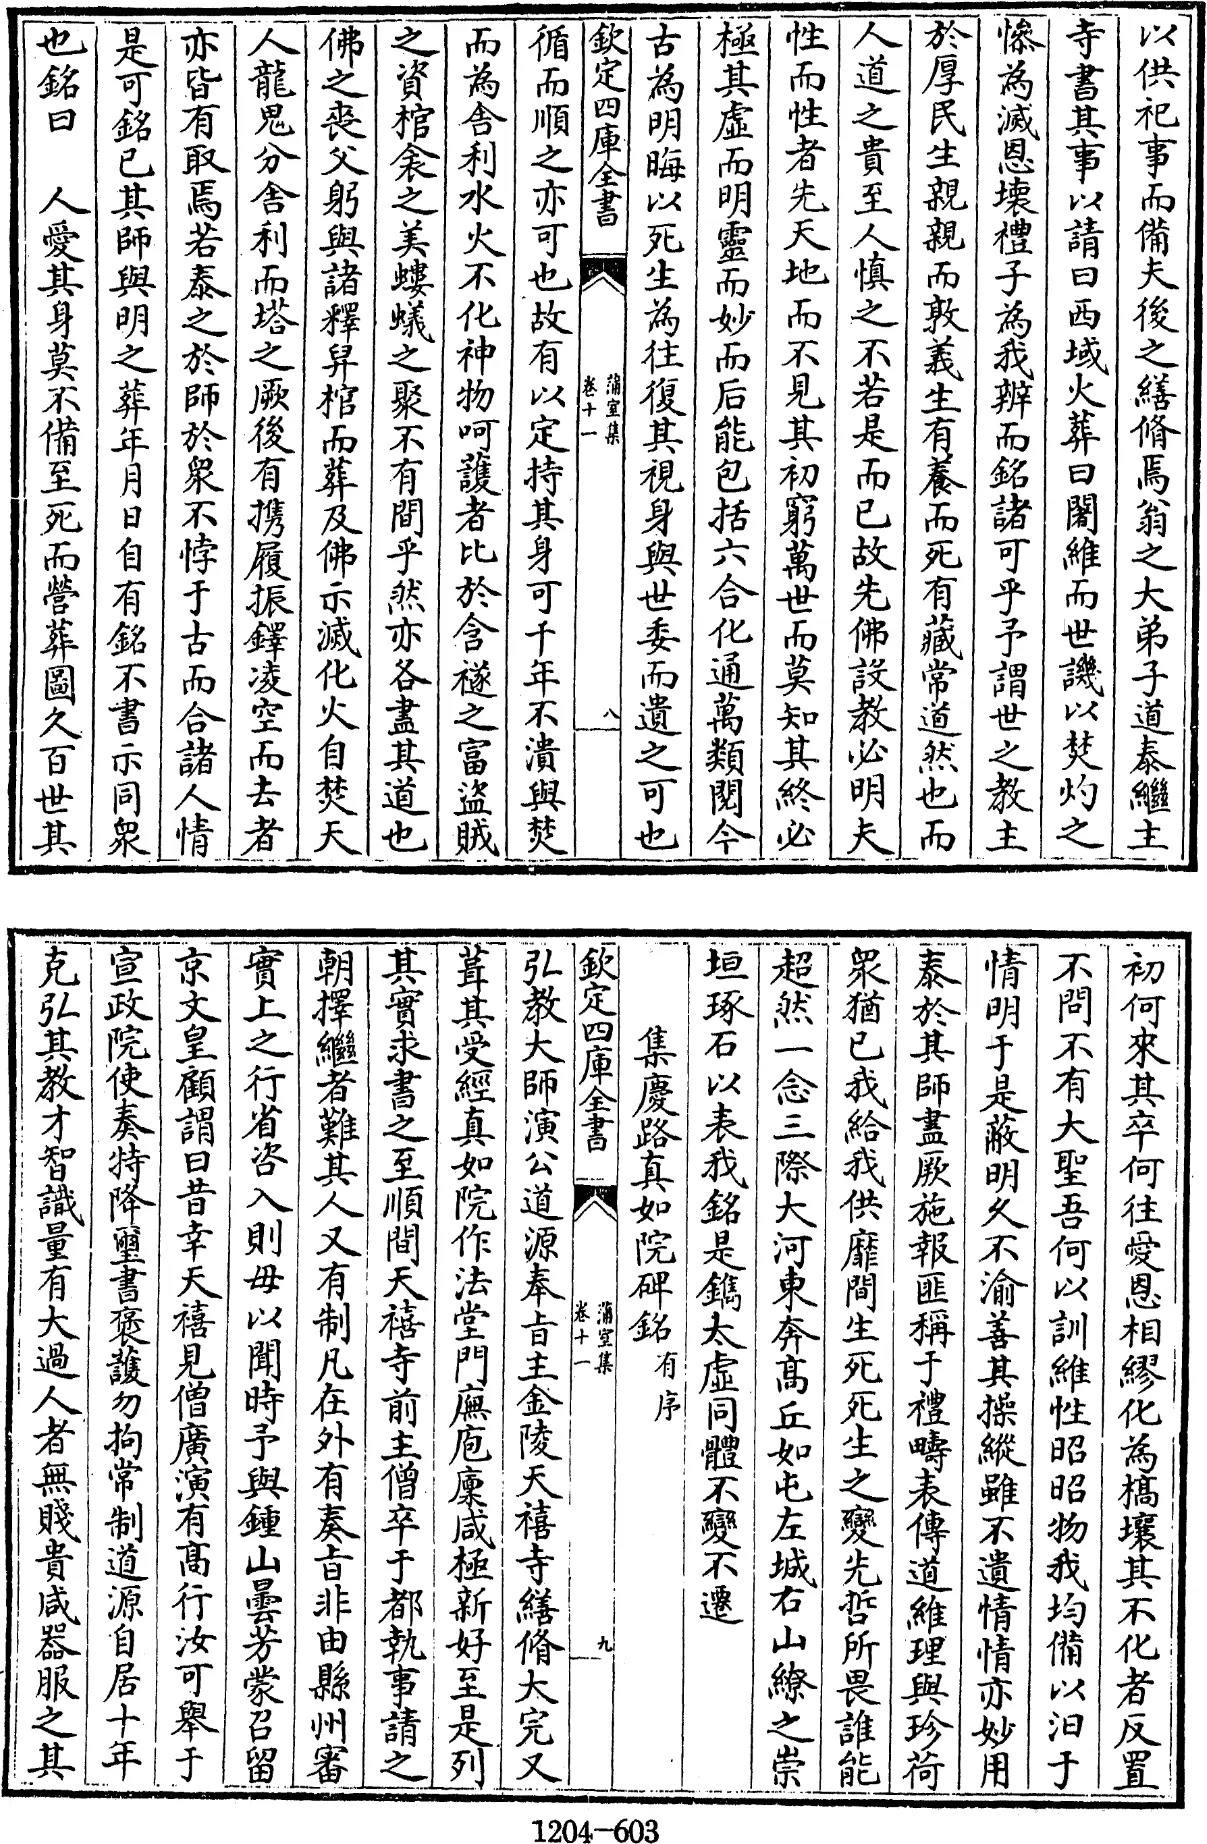 以供祀事而備夫後之繕脩焉翁之大弟子道泰繼主
寺書其事以請曰西域火葬曰闍維而世譏以焚灼之
慘為滅恩壞禮子為我辨而銘諸可乎予謂世之教主
於厚民生親親而敦義生有養而死有藏常道然也而
人道之貴至人慎之不若是而已故先佛設教必明夫
性而性者先天地而不見其初窮萬世而莫知其終必
極其虛而明靈而妙而后能包括六合化通萬類閱今
古為明晦以死生為往復其視身與世委而遺之可也
欽定四庫全書
蒲室集
卷十一
八
循而順之亦可也故有以定持其身可千年不潰與焚
而為舍利水火不化神物呵護者比於含襚之富盜賊
之資棺衾之美螻蟻之聚不有間乎然亦各盡其道也
佛之喪父躬與諸釋舁棺而葬及佛示滅化火自焚天
人龍鬼分舍利而塔之厥後有携履振鐸凌空而去者
亦皆有取焉若泰之於師於衆不悖于古而合諸人情
是可銘已其師與明之葬年月日自有銘不書示同衆
也銘曰　人愛其身莫不備至死而營葬圖久百世其
初何來其卒何往愛恩相繆化為槁壤其不化者反置
不問不有大聖吾何以訓維性昭昭物我均備以汨于
情明于是蔽明久不渝善其操縱雖不遺情情亦妙用
泰於其師盡厥施報匪稱于禮疇表傳道維理與珍荷
衆猶已我給我供靡間生死死生之變先哲所畏誰能
超然一念三際大河東奔高丘如屯左城右山繚之崇
垣琢石以表我銘是鐫太虛同體不變不遷
集慶路真如院碑銘有序
欽定四庫全書
蒲室集
卷十一
九
弘教大師演公道源奉旨主金陵天禧寺繕脩大完又
葺其受經真如院作法堂門廡庖廩咸極新好至是列
其實求書之至順間天禧寺前主僧卒于都執事請之
朝擇繼者難其人又有制凡在外有奏旨非由縣州審
實上之行省咨入則毋以聞時予與鍾山曇芳蒙召留
京文皇顧謂曰昔幸天禧見僧廣演有高行汝可舉于
宣政院使奏特降璽書褒護勿拘常制道源自居十年
克弘其教才智識量有大過人者無賤貴咸器服之其
1204-603